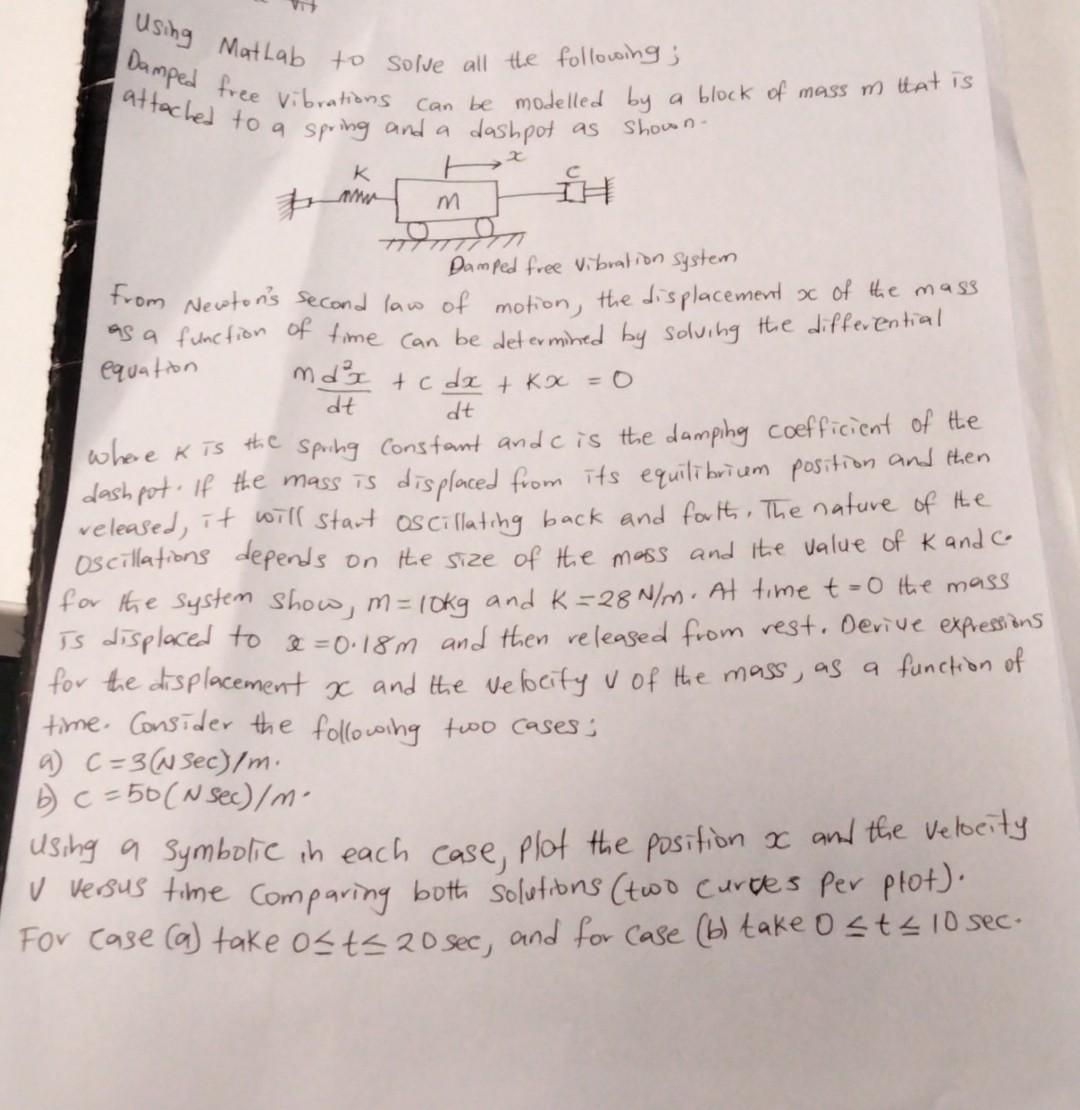 Using MatLab to solve all the following;
Damped free vibrations can be modelled by a block of mass m that is
attached to a spring and a dashpot as shown-
K
x
c
m
Damped free vibration system
From Newton's second law of motion, the displacement x of the mass
as a function of time can be determined by solving the differential
equation m d²x/dt + c dx/dt + Kx = 0
where K is the spring constant and c is the damping coefficient of the
dashpot. If the mass is displaced from its equilibrium position and then
released, it will start oscillating back and forth. The nature of the
oscillations depends on the size of the mass and the value of K and C.
for the system show, m=10kg and K=28 N/m. At time t=0 the mass
is displaced to x=0.18m and then released from rest. Derive expressions
for the displacement x and the velocity v of the mass, as a function of
time. Consider the following two cases;
a) C=3(N sec)/m.
b) c=50(N sec)/m.
using a symbolic in each case, plot the position x and the velocity
v versus time comparing both solutions (two curves per plot).
For case (a) take 0≤t≤20 sec, and for case (b) take 0≤t≤10 sec.